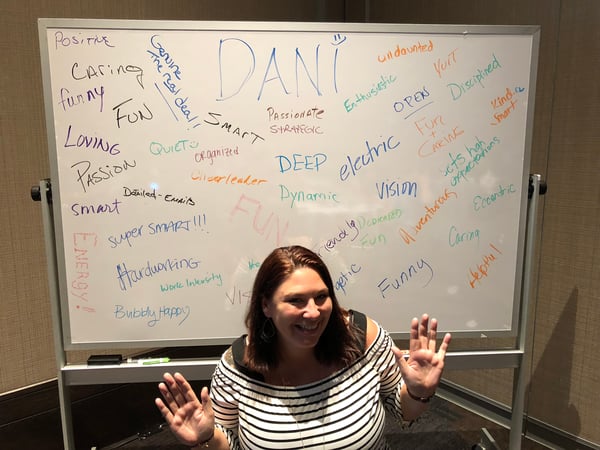 DANi
POSiTiVE
CARing
funny
Genuine
The real deal!!
FUN
SMART
LOVING
QUIET
ORGANIZED
PASSION
Cheerleader
Detailed - Emails
smart
super SMART!!!
FUN
ENERGY!
Hardworking
Work Intensity
Bubbly Happy
PASSIONATE
STRATEGIC
DEEP
Dynamic
Enthusiastic
undaunted
YURT
Disciplined
OPEN
Kind &
smart
FUN
+
CARING
electric
Sets high
expectations
VISION
Eccentric
Adventurous
DEDICATED
FUN
Friendly
Caring
Helpful
Funny